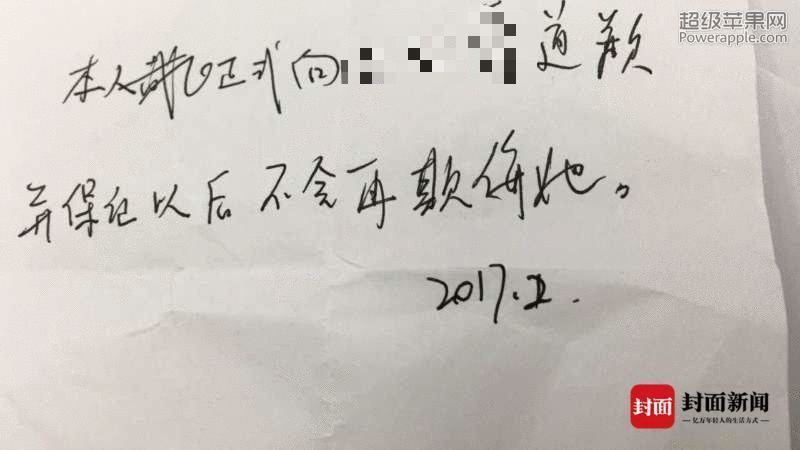 超级苹果网
Powerapple.com
本人正式向道歉
并保证以后不会再欺侮她。
2017.
封面 封面新闻
亿万年轻人的生活方式